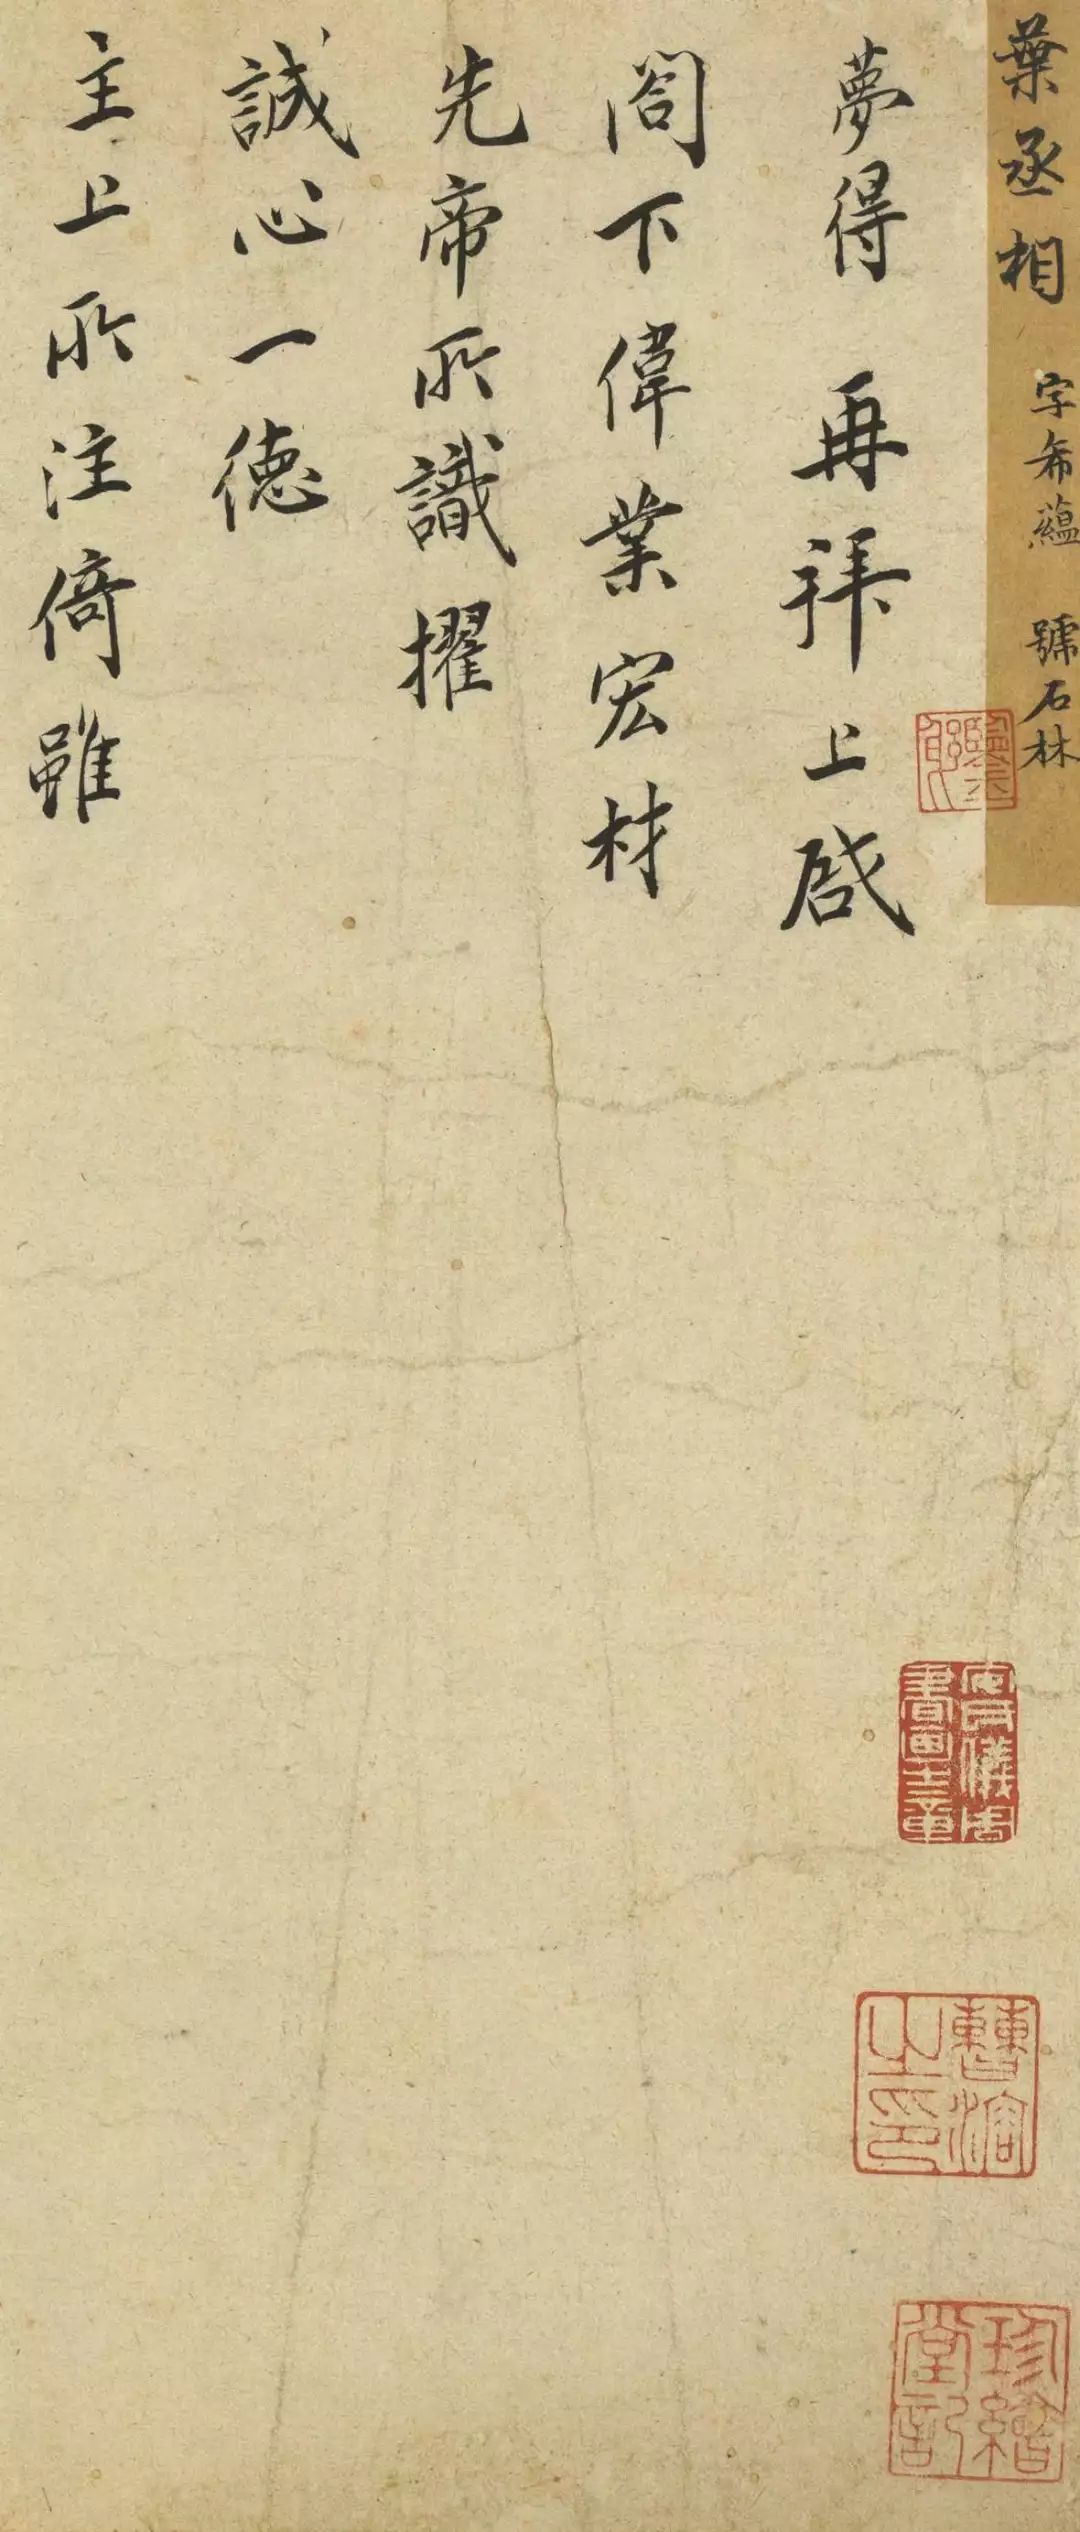 葉丞相 字希蘊 號石林
夢得 再拜上啟
閤下偉業宏材
先帝所識擢
誠心一德
主上所注倚雖
珍繪堂記